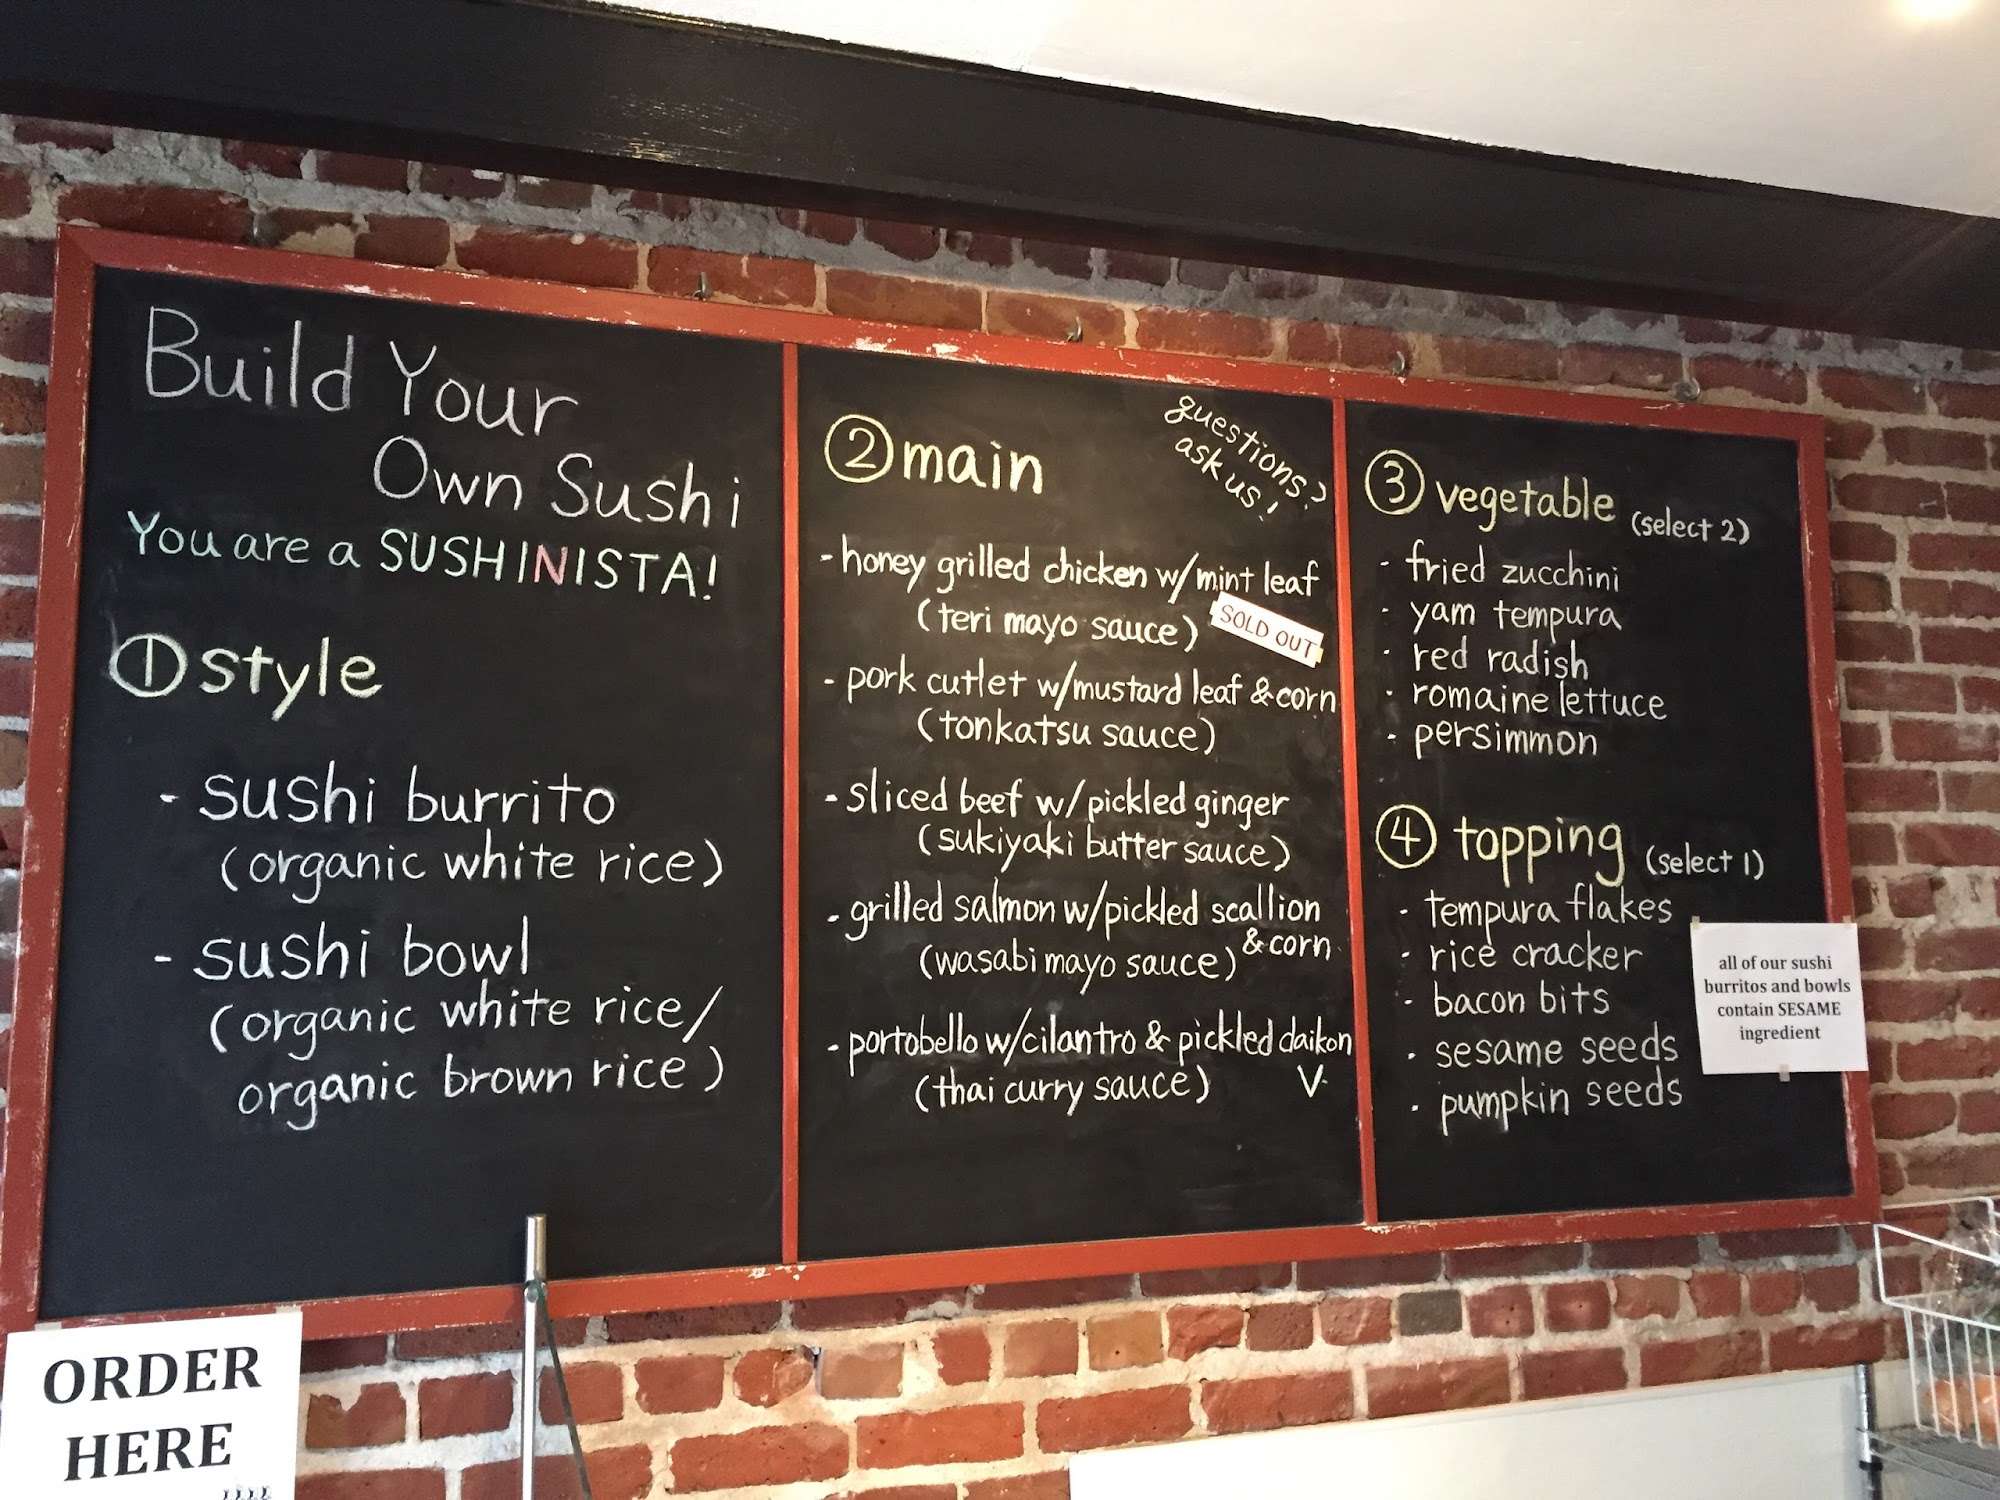 Build Your
Own Sushi
You are a SUSHINISTA!
① style
- sushi burrito
(organic white rice)
- sushi bowl
(organic white rice/
organic brown rice)
② main
questions?
ask us!
- honey grilled chicken w/ mint leaf
(teri mayo sauce)
SOLD OUT
- pork cutlet w/mustard leaf & corn
(tonkatsu sauce)
- sliced beef w/ pickled ginger
(sukiyaki butter sauce)
- grilled salmon w/pickled scallion
& corn
(wasabi mayo sauce)
- portobello w/cilantro & pickled daikon
(thai curry sauce) V
③ vegetable (select 2)
- fried zucchini
- yam tempura
- red radish
- romaine lettuce
- persimmon
④ topping (select 1)
- tempura flakes
- rice cracker
- bacon bits
- sesame seeds
- pumpkin seeds
all of our sushi
burritos and bowls
contain SESAME
ingredient
ORDER
HERE